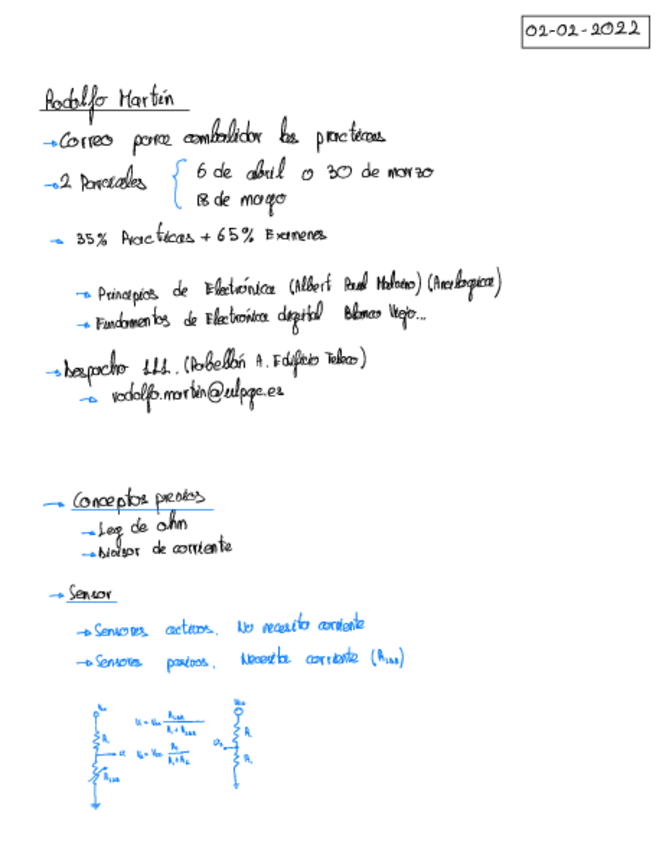 02-02-2022
Rodolfo Martín
→ Correo para combalidar las practicas
→ 2 Parciales { 6 de abril o 30 de marzo
18 de mayo
→ 35% Practicas + 65% Examenes
→ Principios de Electrónica (Albert Paul Malvino) (Analogica)
→ Fundamentos de Electrónica digital Blanco Viejo...
→ Despacho 111. (Pabellón A. Edificio Teleco)
→ rodolfo.martin@ulpgc.es
→ Conceptos previos
→ Ley de ohm
→ Divisor de corriente
→ Sensor
→ Sensores activos. No necesita corriente
→ Sensores pasivos. Necesita corriente